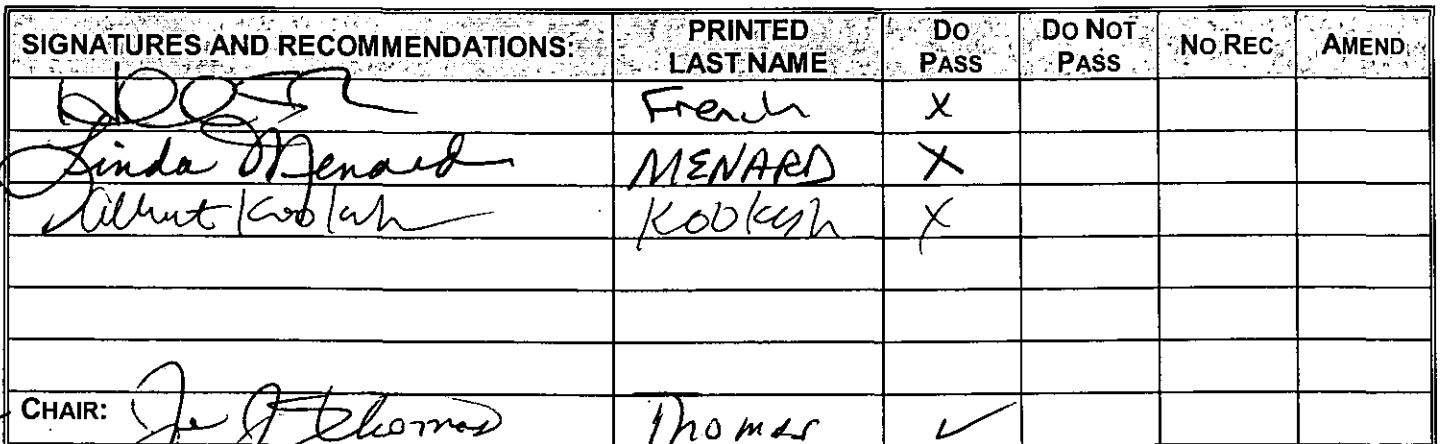 SIGNATURES AND RECOMMENDATIONS: PRINTED LAST NAME DO PASS DO NOT PASS NO REC AMEND
French X
Linda Menard MENARD X
Albert Kookesh Kookesh X
CHAIR: Joe J Thomas Thomas ✓